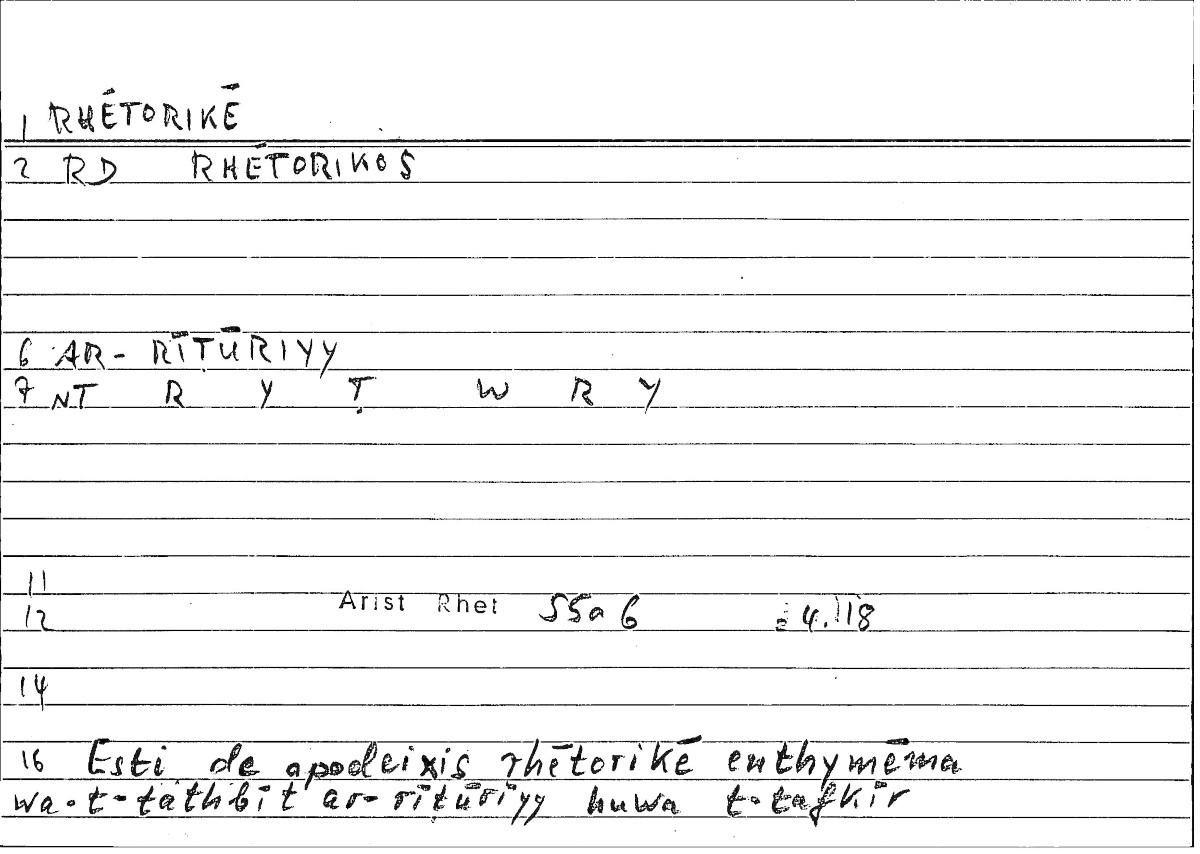 1 RHĒTORIKĒ
2 RD RHĒTORIKOS
6 AR- RĪṬŪRIYY
7 NT R Y Ṭ W R Y
11
12 Arist Rhet 55a6 4.18
14
16 Esti de apodeixis rhētorikē enthymēma
wa-t-tathbīt ar- rīṭūriyy huwa t-tafkīr